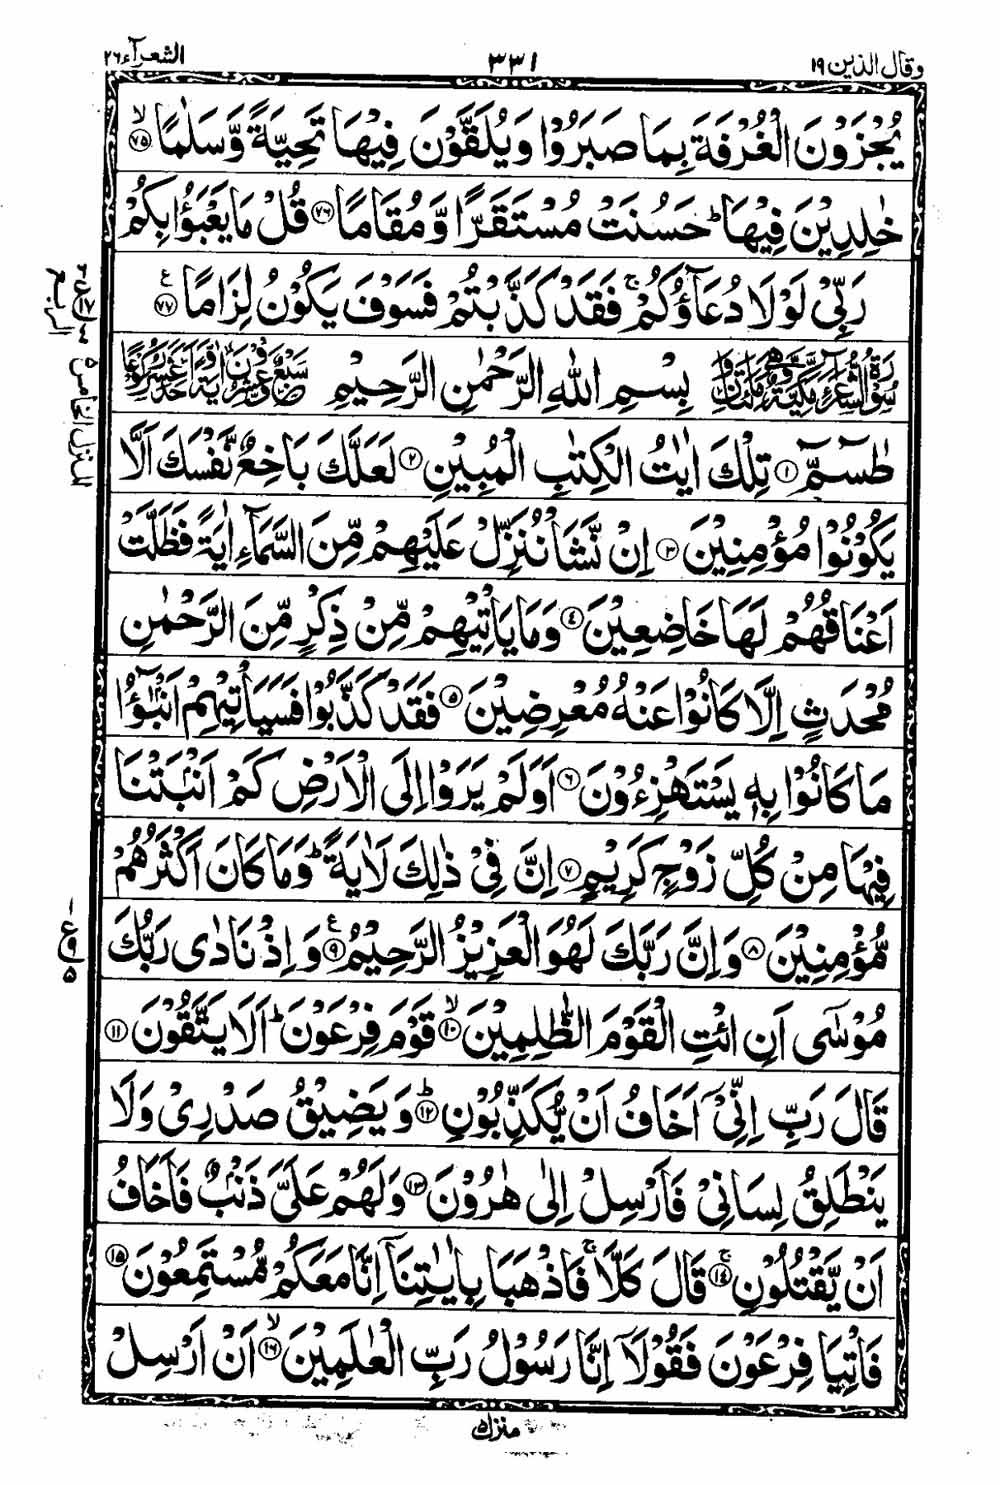 وقال الذين ١٩
٣٣١
الشعرآء ٢٦
يُجْزَوْنَ الْغُرْفَةَ بِمَا صَبَرُوْا وَيُلَقَّوْنَ فِيْهَا تَحِيَّةً وَّسَلٰمًا ۙ﴿٧٥﴾
خٰلِدِيْنَ فِيْهَا ؕ حَسُنَتْ مُسْتَقَرًّا وَّمُقَامًا ﴿٧٦﴾ قُلْ مَا يَعْبَؤُا بِكُمْ
رَبِّىْ لَوْ لَا دُعَآؤُكُمْ ۚ فَقَدْ كَذَّبْتُمْ فَسَوْفَ يَكُوْنُ لِزَامًا ﴿٧٧﴾ ع
بِسْمِ اللهِ الرَّحْمٰنِ الرَّحِيْمِ
طٰسٓمّٓ ﴿١﴾ تِلْكَ اٰيٰتُ الْكِتٰبِ الْمُبِيْنِ ﴿٢﴾ لَعَلَّكَ بَاخِعٌ نَّفْسَكَ اَلَّا
يَكُوْنُوْا مُؤْمِنِيْنَ ﴿٣﴾ اِنْ نَّشَاْ نُنَزِّلْ عَلَيْهِمْ مِّنَ السَّمَآءِ اٰيَةً فَظَلَّتْ
اَعْنَاقُهُمْ لَهَا خَاضِعِيْنَ ﴿٤﴾ وَمَا يَاْتِيْهِمْ مِّنْ ذِكْرٍ مِّنَ الرَّحْمٰنِ
مُحْدَثٍ اِلَّا كَانُوْا عَنْهُ مُعْرِضِيْنَ ﴿٥﴾ فَقَدْ كَذَّبُوْا فَسَيَاْتِيْهِمْ اَنْۢبٰٓؤُا
مَا كَانُوْا بِهٖ يَسْتَهْزِءُوْنَ ﴿٦﴾ اَوَلَمْ يَرَوْا اِلَى الْاَرْضِ كَمْ اَنْۢبَتْنَا
فِيْهَا مِنْ كُلِّ زَوْجٍ كَرِيْمٍ ﴿٧﴾ اِنَّ فِىْ ذٰلِكَ لَاٰيَةً ؕ وَمَا كَانَ اَكْثَرُهُمْ
مُّؤْمِنِيْنَ ﴿٨﴾ وَاِنَّ رَبَّكَ لَهُوَ الْعَزِيْزُ الرَّحِيْمُ ﴿٩﴾ ع وَاِذْ نَادٰى رَبُّكَ
مُوْسٰٓى اَنِ ائْتِ الْقَوْمَ الظّٰلِمِيْنَ ۙ﴿١٠﴾ قَوْمَ فِرْعَوْنَ ؕ اَلَا يَتَّقُوْنَ ﴿١١﴾
قَالَ رَبِّ اِنِّىْٓ اَخَافُ اَنْ يُّكَذِّبُوْنِ ؕ﴿١٢﴾ وَيَضِيْقُ صَدْرِىْ وَلَا
يَنْطَلِقُ لِسَانِىْ فَاَرْسِلْ اِلٰى هٰرُوْنَ ﴿١٣﴾ وَلَهُمْ عَلَىَّ ذَنْۢبٌ فَاَخَافُ
اَنْ يَّقْتُلُوْنِ ۚ﴿١٤﴾ قَالَ كَلَّا ۚ فَاذْهَبَا بِاٰيٰتِنَآ اِنَّا مَعَكُمْ مُّسْتَمِعُوْنَ ﴿١٥﴾
فَاْتِيَا فِرْعَوْنَ فَقُوْلَآ اِنَّا رَسُوْلُ رَبِّ الْعٰلَمِيْنَ ۙ﴿١٦﴾ اَنْ اَرْسِلْ
منزل ٥